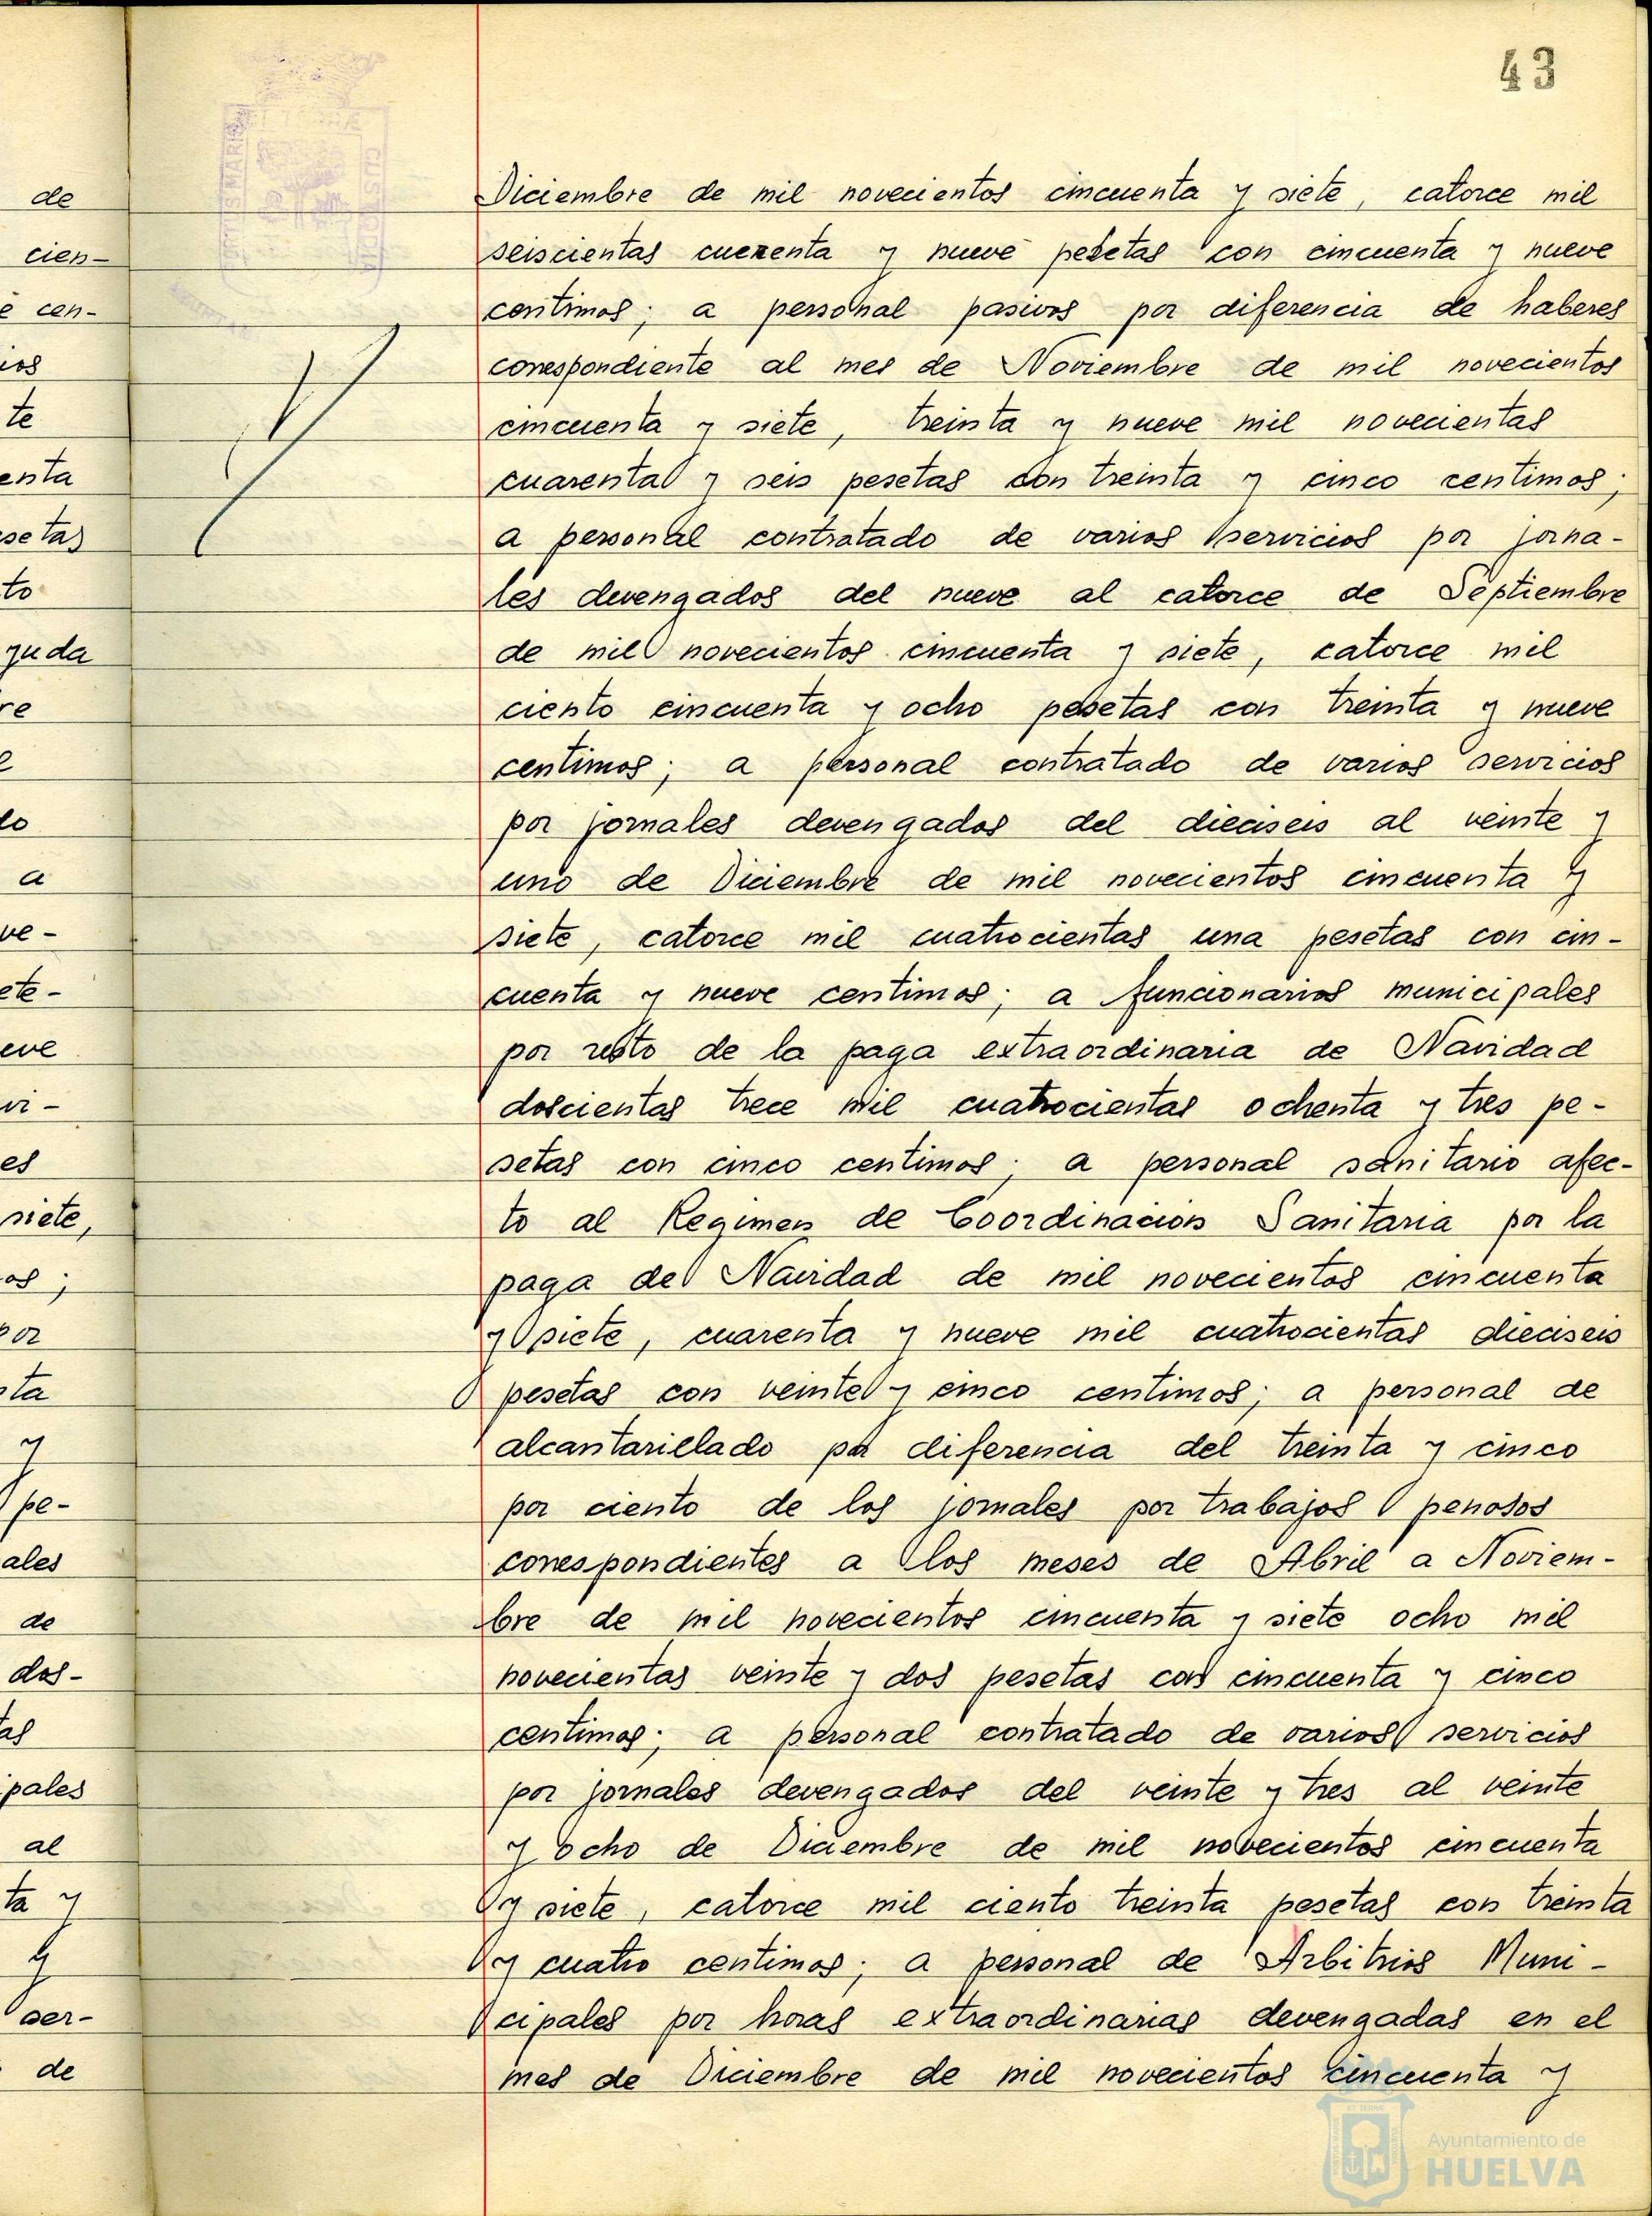 43
de
cien-
e cen-
ios
te
enta
setas
to
yuda
re
e
lo
a
ve-
ete-
eve
vi-
es
siete,
os;
por
sta
y
pe-
ales
de
dos-
tas
ipales
al
ta y
y
ser-
de
PORTUS MARIS
ET TERRÆ
CUSTODIA
Diciembre de mil novecientos cincuenta y siete, catorce mil
seiscientas cuerenta y nueve pesetas con cincuenta y nueve
centimos; a personal pasivos por diferencia de haberes
correspondiente al mes de Noviembre de mil novecientos
cincuenta y siete, treinta y nueve mil novecientas
cuarenta y seis pesetas con treinta y cinco centimos;
a personal contratado de varios servicios por jorna-
les devengados del nueve al catorce de Septiembre
de mil novecientos cincuenta y siete, catorce mil
ciento cincuenta y ocho pesetas con treinta y nueve
centimos; a personal contratado de varios servicios
por jornales devengados del dieciseis al veinte y
uno de Diciembre de mil novecientos cincuenta y
siete, catorce mil cuatrocientas una pesetas con cin-
cuenta y nueve centimos; a funcionarios municipales
por resto de la paga extraordinaria de Navidad
doscientas trece mil cuatrocientas ochenta y tres pe-
setas con cinco centimos; a personal sanitario afec-
to al Regimen de Coordinacion Sanitaria por la
paga de Navidad de mil novecientos cincuenta
y siete, cuarenta y nueve mil cuatrocientas dieciseis
pesetas con veinte y cinco centimos; a personal de
alcantarillado por diferencia del treinta y cinco
por ciento de los jornales por trabajos penosos
correspondientes a los meses de Abril a Noviem-
bre de mil novecientos cincuenta y siete ocho mil
novecientas veinte y dos pesetas con cincuenta y cinco
centimos; a personal contratado de varios servicios
por jornales devengados del veinte y tres al veinte
y ocho de Diciembre de mil novecientos cincuenta
y siete, catorce mil ciento treinta pesetas con treinta
y cuatro centimos; a personal de Arbitrios Muni-
cipales por horas extraordinarias devengadas en el
mes de Diciembre de mil novecientos cincuenta y
Ayuntamiento de
HUELVA